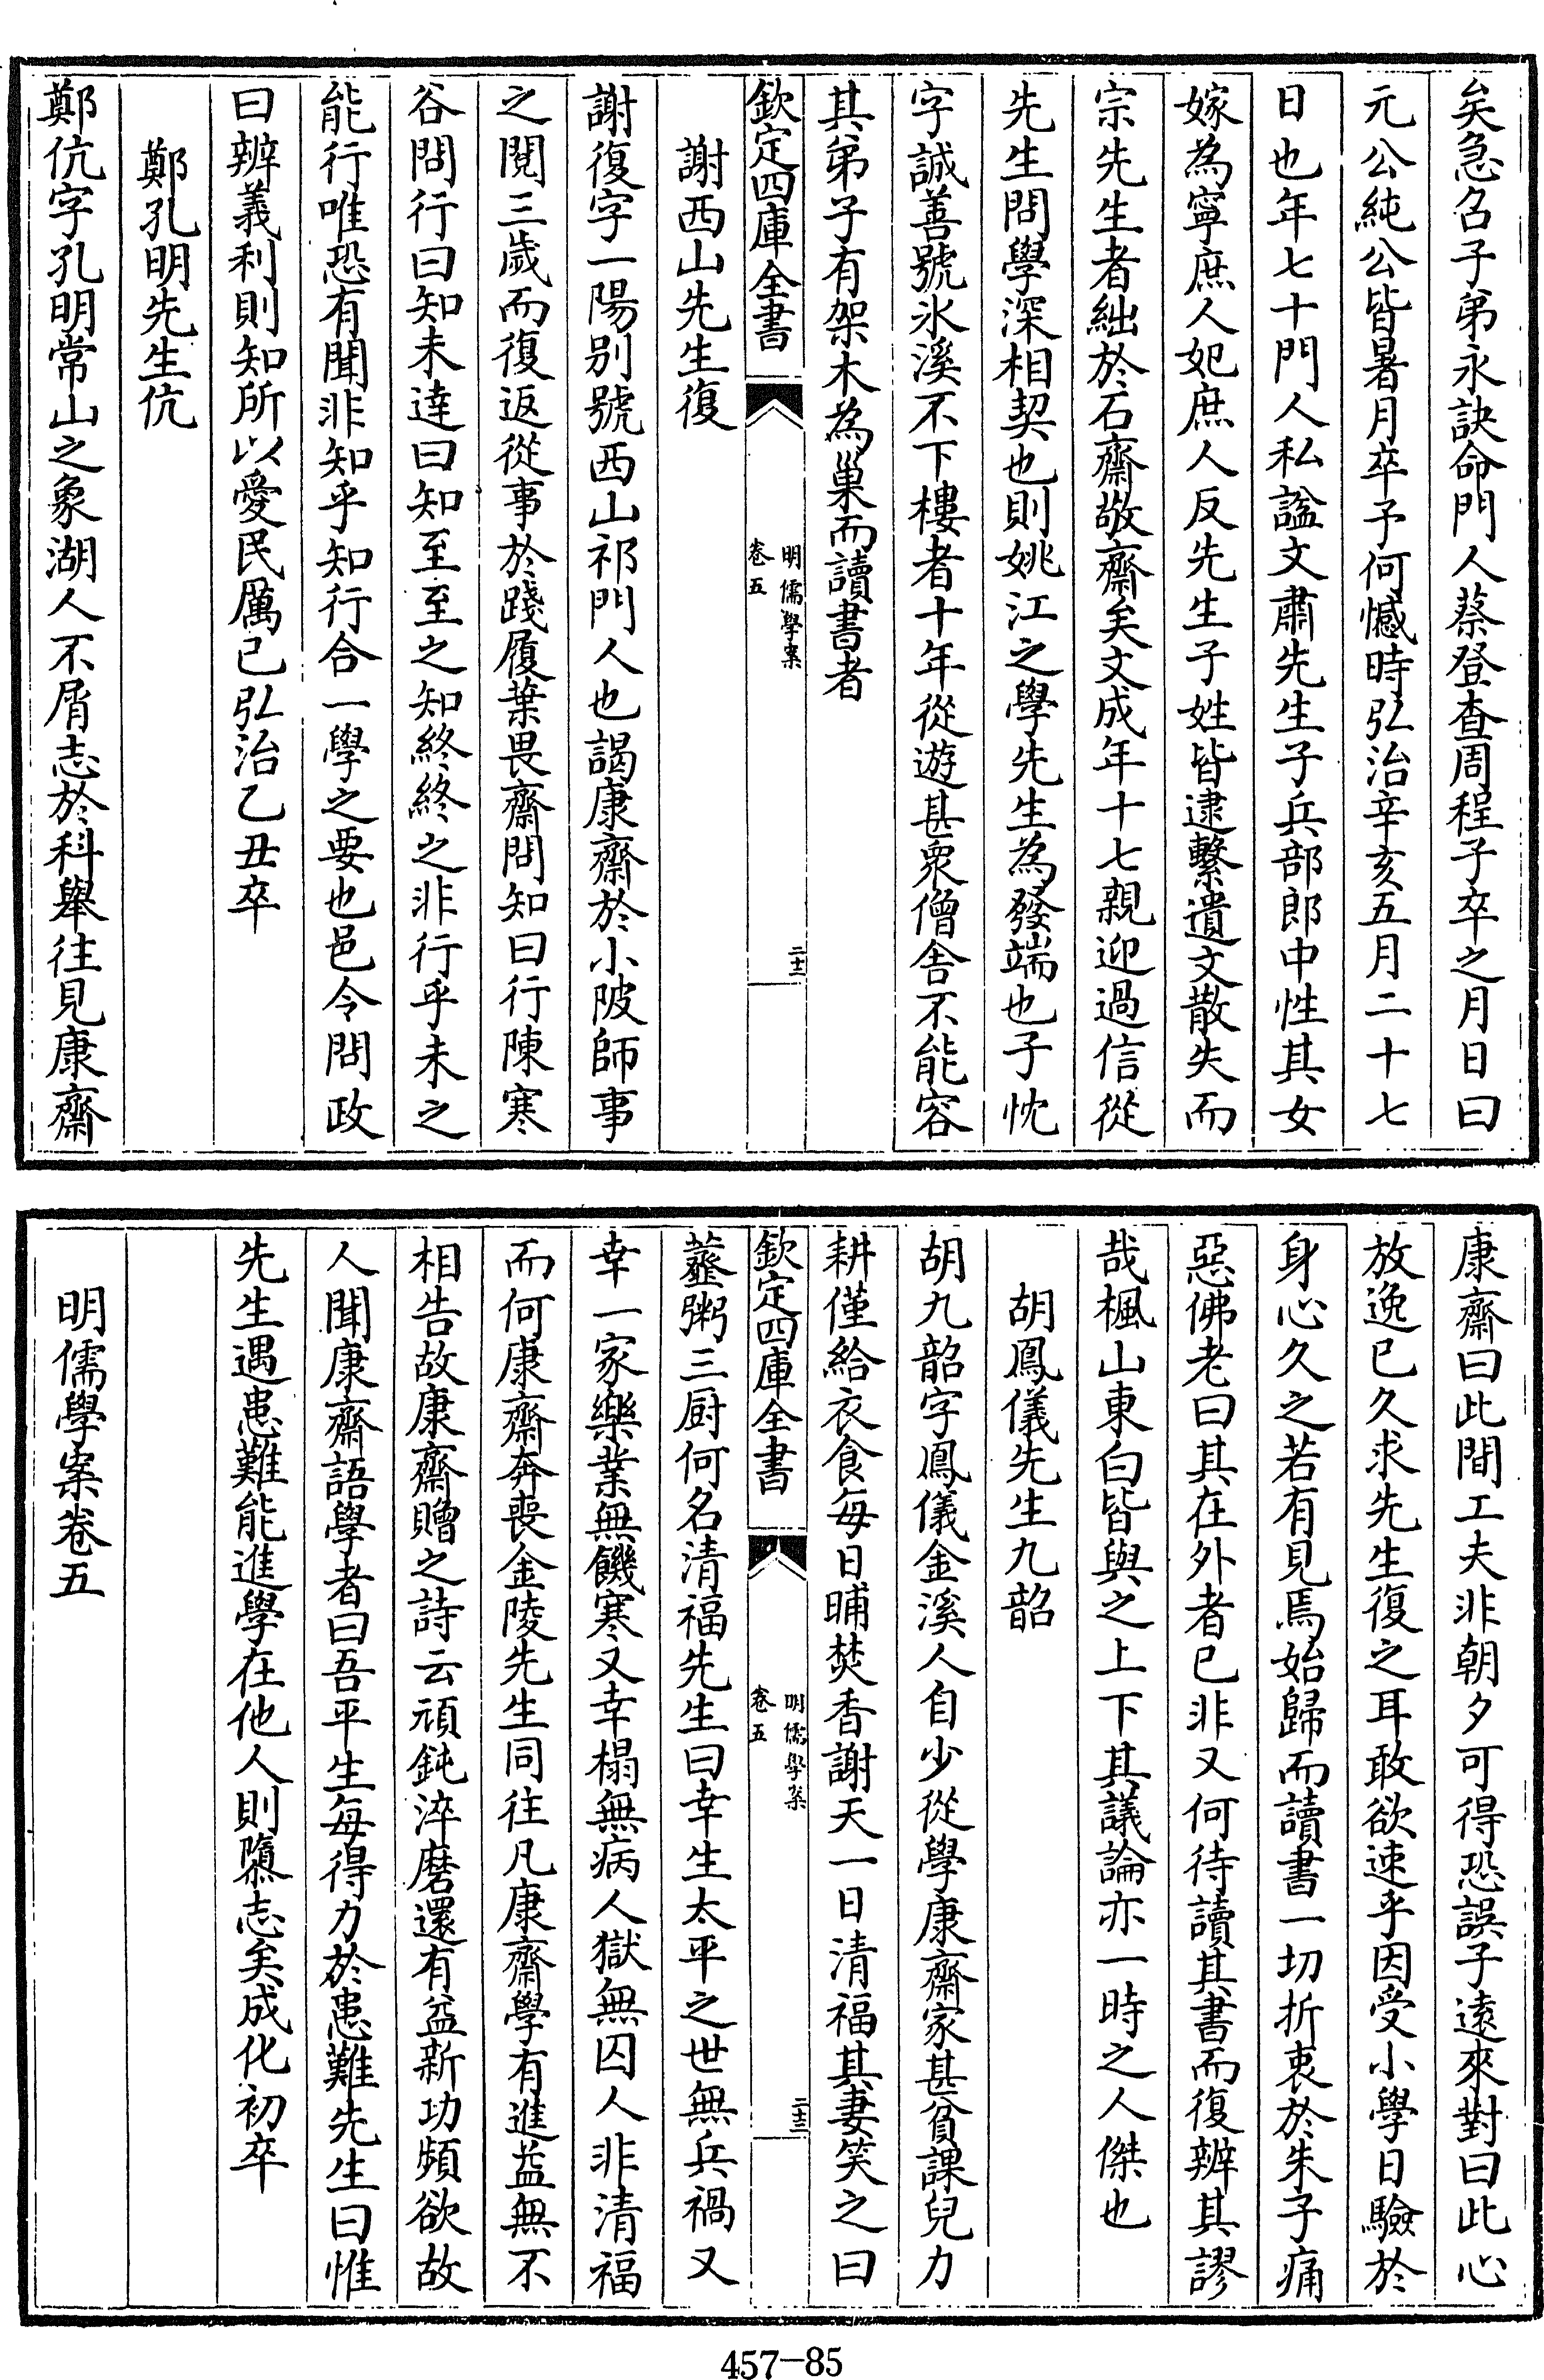 矣急召子弟永訣命門人蔡登查周程子卒之月日曰
元公純公皆暑月卒予何憾時弘治辛亥五月二十七
日也年七十門人私謚文肅先生子兵部郎中性其女
嫁為寧庶人妃庶人反先生子姓皆逮繫遺文散失而
宗先生者絀於石齋敬齋矣文成年十七親迎過信從
先生問學深相契也則姚江之學先生為發端也子忱
字誠善號氷溪不下樓者十年從遊甚衆僧舍不能容
其弟子有架木為巢而讀書者
欽定四庫全書
明儒學案
卷五
二十二
謝西山先生復
謝復字一陽别號西山祁門人也謁康齋於小陂師事
之閱三歲而復返從事於踐履葉畏齋問知曰行陳寒
谷問行曰知未達曰知至至之知終終之非行乎未之
能行唯恐有聞非知乎知行合一學之要也邑令問政
曰辨義利則知所以愛民厲已弘治乙丑卒
鄭孔明先生伉
鄭伉字孔明常山之象湖人不屑志於科舉往見康齋
康齋曰此間工夫非朝夕可得恐誤子遠來對曰此心
放逸已久求先生復之耳敢欲速乎因受小學日驗於
身心久之若有見焉始歸而讀書一切折衷於朱子痛
惡佛老曰其在外者已非又何待讀其書而復辨其謬
哉楓山東白皆與之上下其議論亦一時之人傑也
胡鳳儀先生九韶
胡九韶字鳳儀金溪人自少從學康齋家甚貧課兒力
耕僅給衣食每日晡焚香謝天一日清福其妻笑之曰
欽定四庫全書
明儒學案
卷五
二十三
虀粥三厨何名清福先生曰幸生太平之世無兵禍又
幸一家樂業無饑寒又幸榻無病人獄無囚人非清福
而何康齋奔喪金陵先生同往凡康齋學有進益無不
相告故康齋贈之詩云頑鈍淬磨還有益新功頻欲故
人聞康齋語學者曰吾平生每得力於患難先生曰惟
先生遇患難能進學在他人則隳志矣成化初卒
明儒學案卷五
457-85